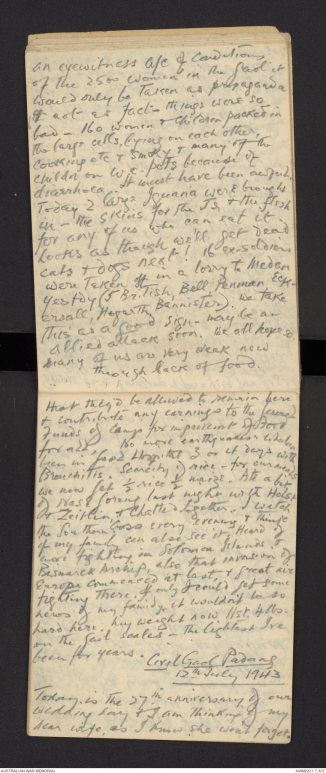 an eyewitness a/c of conditions
of the 2500 women in the gaol it
would only be taken as propaganda
& not as fact - things were so
bad - 160 women & children packed in
the large cells, lying on each other,
cooking etc & smoky & many of the
children on w.c. pots because of
diarrhoea. It must have been awful.
Today 2 large Iguana were brought
in - the skins for the Js, & the flesh
for any of us who can eat it.
Looks as though we'll get dead
cats & dogs next! 16 ex-soldiers
were taken in a lorry to Medan
yestdy (5 British, Bell, Penman, Eck-
ersall, Hogarth, Bannister). We take
this as a good sign - may be an
allied attack soon. We all hope so
many of us are very weak now
through lack of food.
that they'd be allowed to remain here
& contribute any earnings to the general
funds of camp for improvement of food
for all. No more earthquakes lately.
been in Hospital 3 or 4 days with
Bronchitis. Scarcity of rice - for our meals
we now get ½ rice & maize. Ate a bit
of Nasi Goreng last night with
& Zeitlin, & chatted together. I watch
the Southern Cross every evening & think
of my family can also see it. Heard of
more fighting in Solomon Islands &
Bismarck Archip, also that invasion of
Europe commenced at last, & great air
fighting there. If only I could get some
news of my family it wouldn't be so
hard here. My weight now 11st 4lbs.
on the gaol scales - the lightest I've
been for years.
Civil Gaol Padang
12th July 1943
Today is the 27th anniversary of our
wedding day & I am thinking of my
dear wife, as I know she won't forget.
AUSTRALIAN WAR MEMORIAL